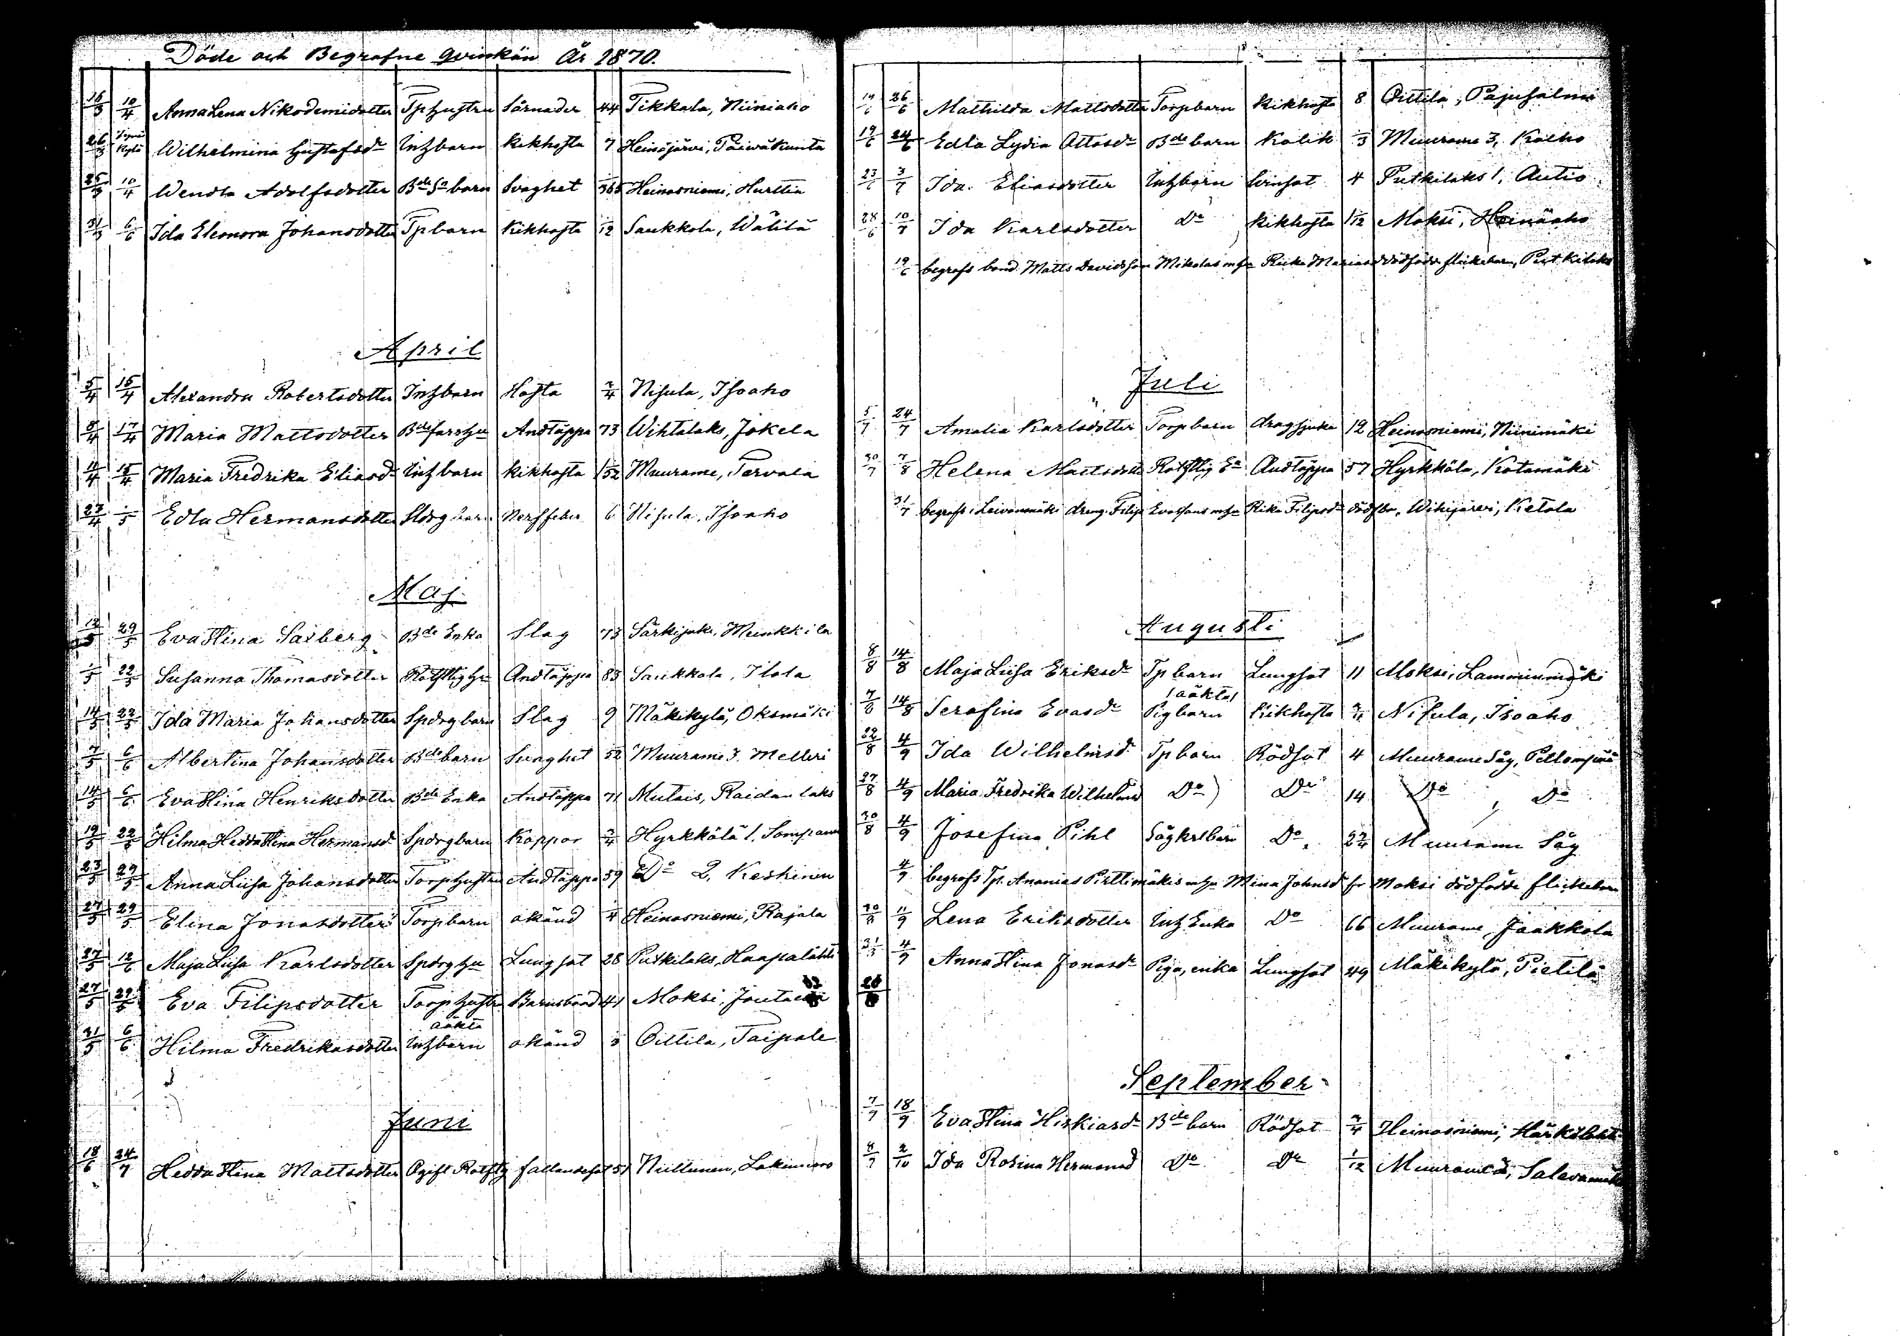 Döde och Begrafne qvinkön År 1870.
16/3 10/4 Anna Lena Nikodemidotter Tphustru Lörnader 44 Tikkala, Niiniaho
26/3 Wilhelmina Gustafsdr Inhbarn Kikhosta 7 Heinojärvi, Päiwäkunta
25/3 10/4 Wendla Adolfsdotter Bde Sn barn Svaghet /365 Heinosniemi, Hurttia
31/3 6/6 Ida Eleonora Johansdotter Tpbarn Kikhosta /12 Saukkola, Wälilä
April
5/4 15/4 Alexandra Robertsdotter Inhbarn Hosta 2/4 Nisula, Isoaho
8/4 17/4 Maria Mattsdotter Bde Andtäppa 73 Wihtalaks, Jokela
11/4 18/4 Maria Fredrika Eliasdr Inhbarn Kikhosta 1/52 Muurame, Tervala
27/4 1/5 Edla Hermansdotter Nerffeber 6 Nisula, Isoaho
Maj
12/5 29/5 Eva Stina Saxberg Bde Enka Slag 73 Särkijoki, Muikkila
1/5 22/5 Susanna Thomasdotter Rotfltghu Andtäppa 83 Saukkola, Ilola
14/5 22/5 Ida Maria Johansdotter Spdrgbarn Slag 9 Mäkikylä, Oksmäki
7/5 6/6 Albertina Johansdotter Bdebarn Svaghet 52 Muurame 3, Melleri
14/5 6/6 Eva Stina Henriksdotter Bde Enka Andtäppa 71 Mutais, Raidanlaks
19/5 22/5 Hilma Hedda Stina Hermansd Spdrgbarn Koppor 3/4 Hyrkkölä 1,
23/5 29/5 Anna Lisa Johansdotter Torphustru Andtäppa 59 Do 2, Keskinen
27/5 29/5 Elina Jonasdotter Torpbarn okänd 1/4 Heinosniemi, Rajala
27/5 12/6 Maja Lisa Karlsdotter Spdrghu Lungsot 28 Putkilaks, Haapalahti
27/5 29/5 Eva Filipsdotter Torphustru Barnsbörd 41 Moksi,
oäkta
31/5 6/6 Hilma Fredrikasdotter Inhbarn okänd 3 Oittila, Taipale
Juni
18/6 24/7 Hedda Stina Mattsdotter Ogift Rotfltg fallandesot 51
19/6 26/6 Mathilda Mattsdotter Torpbarn Kikhosta 8 Oittila, Papusalmi
19/6 24/6 Edla Lydia Ottosdr Bde barn Kolik 1/3 Muurame 3, Kolho
23/6 3/7 Ida Eliasdotter Inhbarn Vinsot 4 Putkilaks 1, Autio
28/6 10/7 Ida Karlsdotter Do Kikhosta 1/12 Moksi, Heinäaho
19/6 begrofs bond. Matts Davidsson Mikolas m hu dödfödde flickebarn, Putkilaks
Juli
5/7 24/7 Amalia Karlsdotter Torpbarn dragsjuka 12 Heinosniemi, Niinimäki
30/7 7/8 Helena Mattsdotter Rotfltg Ea Andtäppa 57 Hyrkkölä, Kotamäki
31/7 begrofs i Leivonmäki dreng. Filip Evassons m hu Rika Filipsdr dödfba, Wihijärvi, Ketola
Augusti
8/8 14/8 Maja Lisa Eriksdr Tpbarn Lungsot 11 Moksi, Lamminmäki
(oäkta)
7/8 14/8 Serafina Evasdr Pigbarn Kikhosta Nisula, Isoaho
22/8 4/9 Ida Wilhelmsd Tpbarn Rödsot 4 Muurame Såg,
27/8 4/9 Maria Fredrika Wilhelmsd Do Do 14 Do, Do
30/8 4/9 Josefina Pihl Sågkrlbarn Do Muurame Såg
4/9 begrofs Tp. Ananias Pirttimäkis m hu Mina Johnsdr fr Moksi dödfödde flickebarn
30/8 11/9 Lena Eriksdotter Inh Enka Do 66 Muurame, Jaakkola
4/9 Anna Stina Jonasdr Piga, enka Lungsot 49 Mäkikylä, Pietilä
September
7/9 18/9 Eva Stina Hiskiasdr Bdebarn Rödsot 3/4 Heinosniemi,
8/9 2/10 Ida Rosina Hermansd Do Do 1/12 Muurame